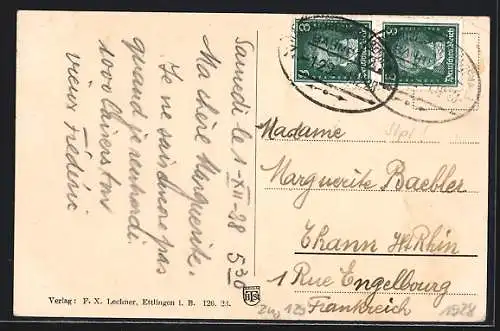 Samedi le 1-XII-28 5 30
Ma chère Marguerite.
Je ne sais encore pas
quand je rentrerai.
1000 baisers ton
vieux Frédéric
Deutsches Reich
8
8
Madame
Marguerite Baebler
Thann Ht Rhin
1 Rue Engelbourg
Frankreich
1928
Verlag: F. X. Lechner, Ettlingen i. B. 126. 23.